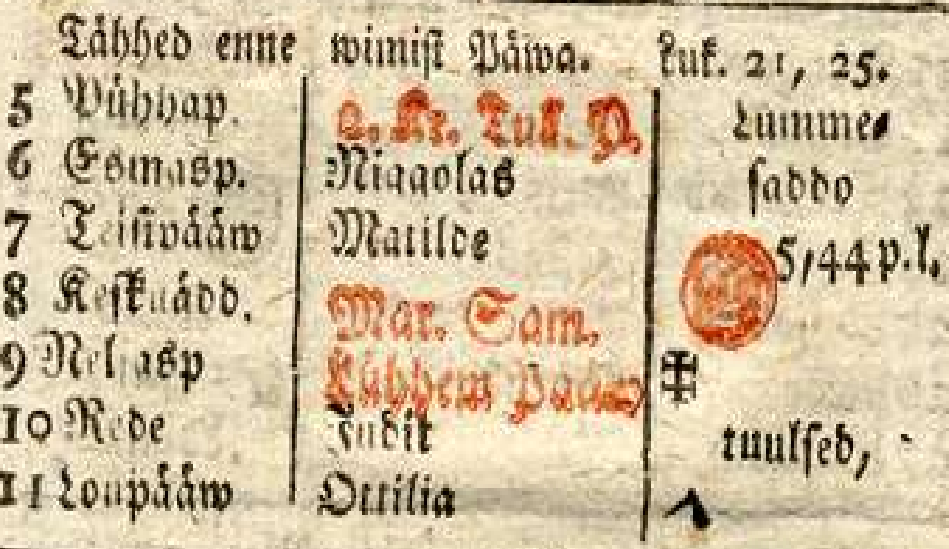 Tähhed enne wimist Päiwa. Luk. 21, 25.
5 Pühhap. 2. Kr. Tul. P. Lumme
6 Esmasp. Niggolas saddo
7 Teisipääw Matilde 5,44 p. l.
8 Kesknädd. Mar. Sam.
9 Neljasp Lühhem Pääw
10 Rede Judit tuulsed,
11 Loupääw Ottilia